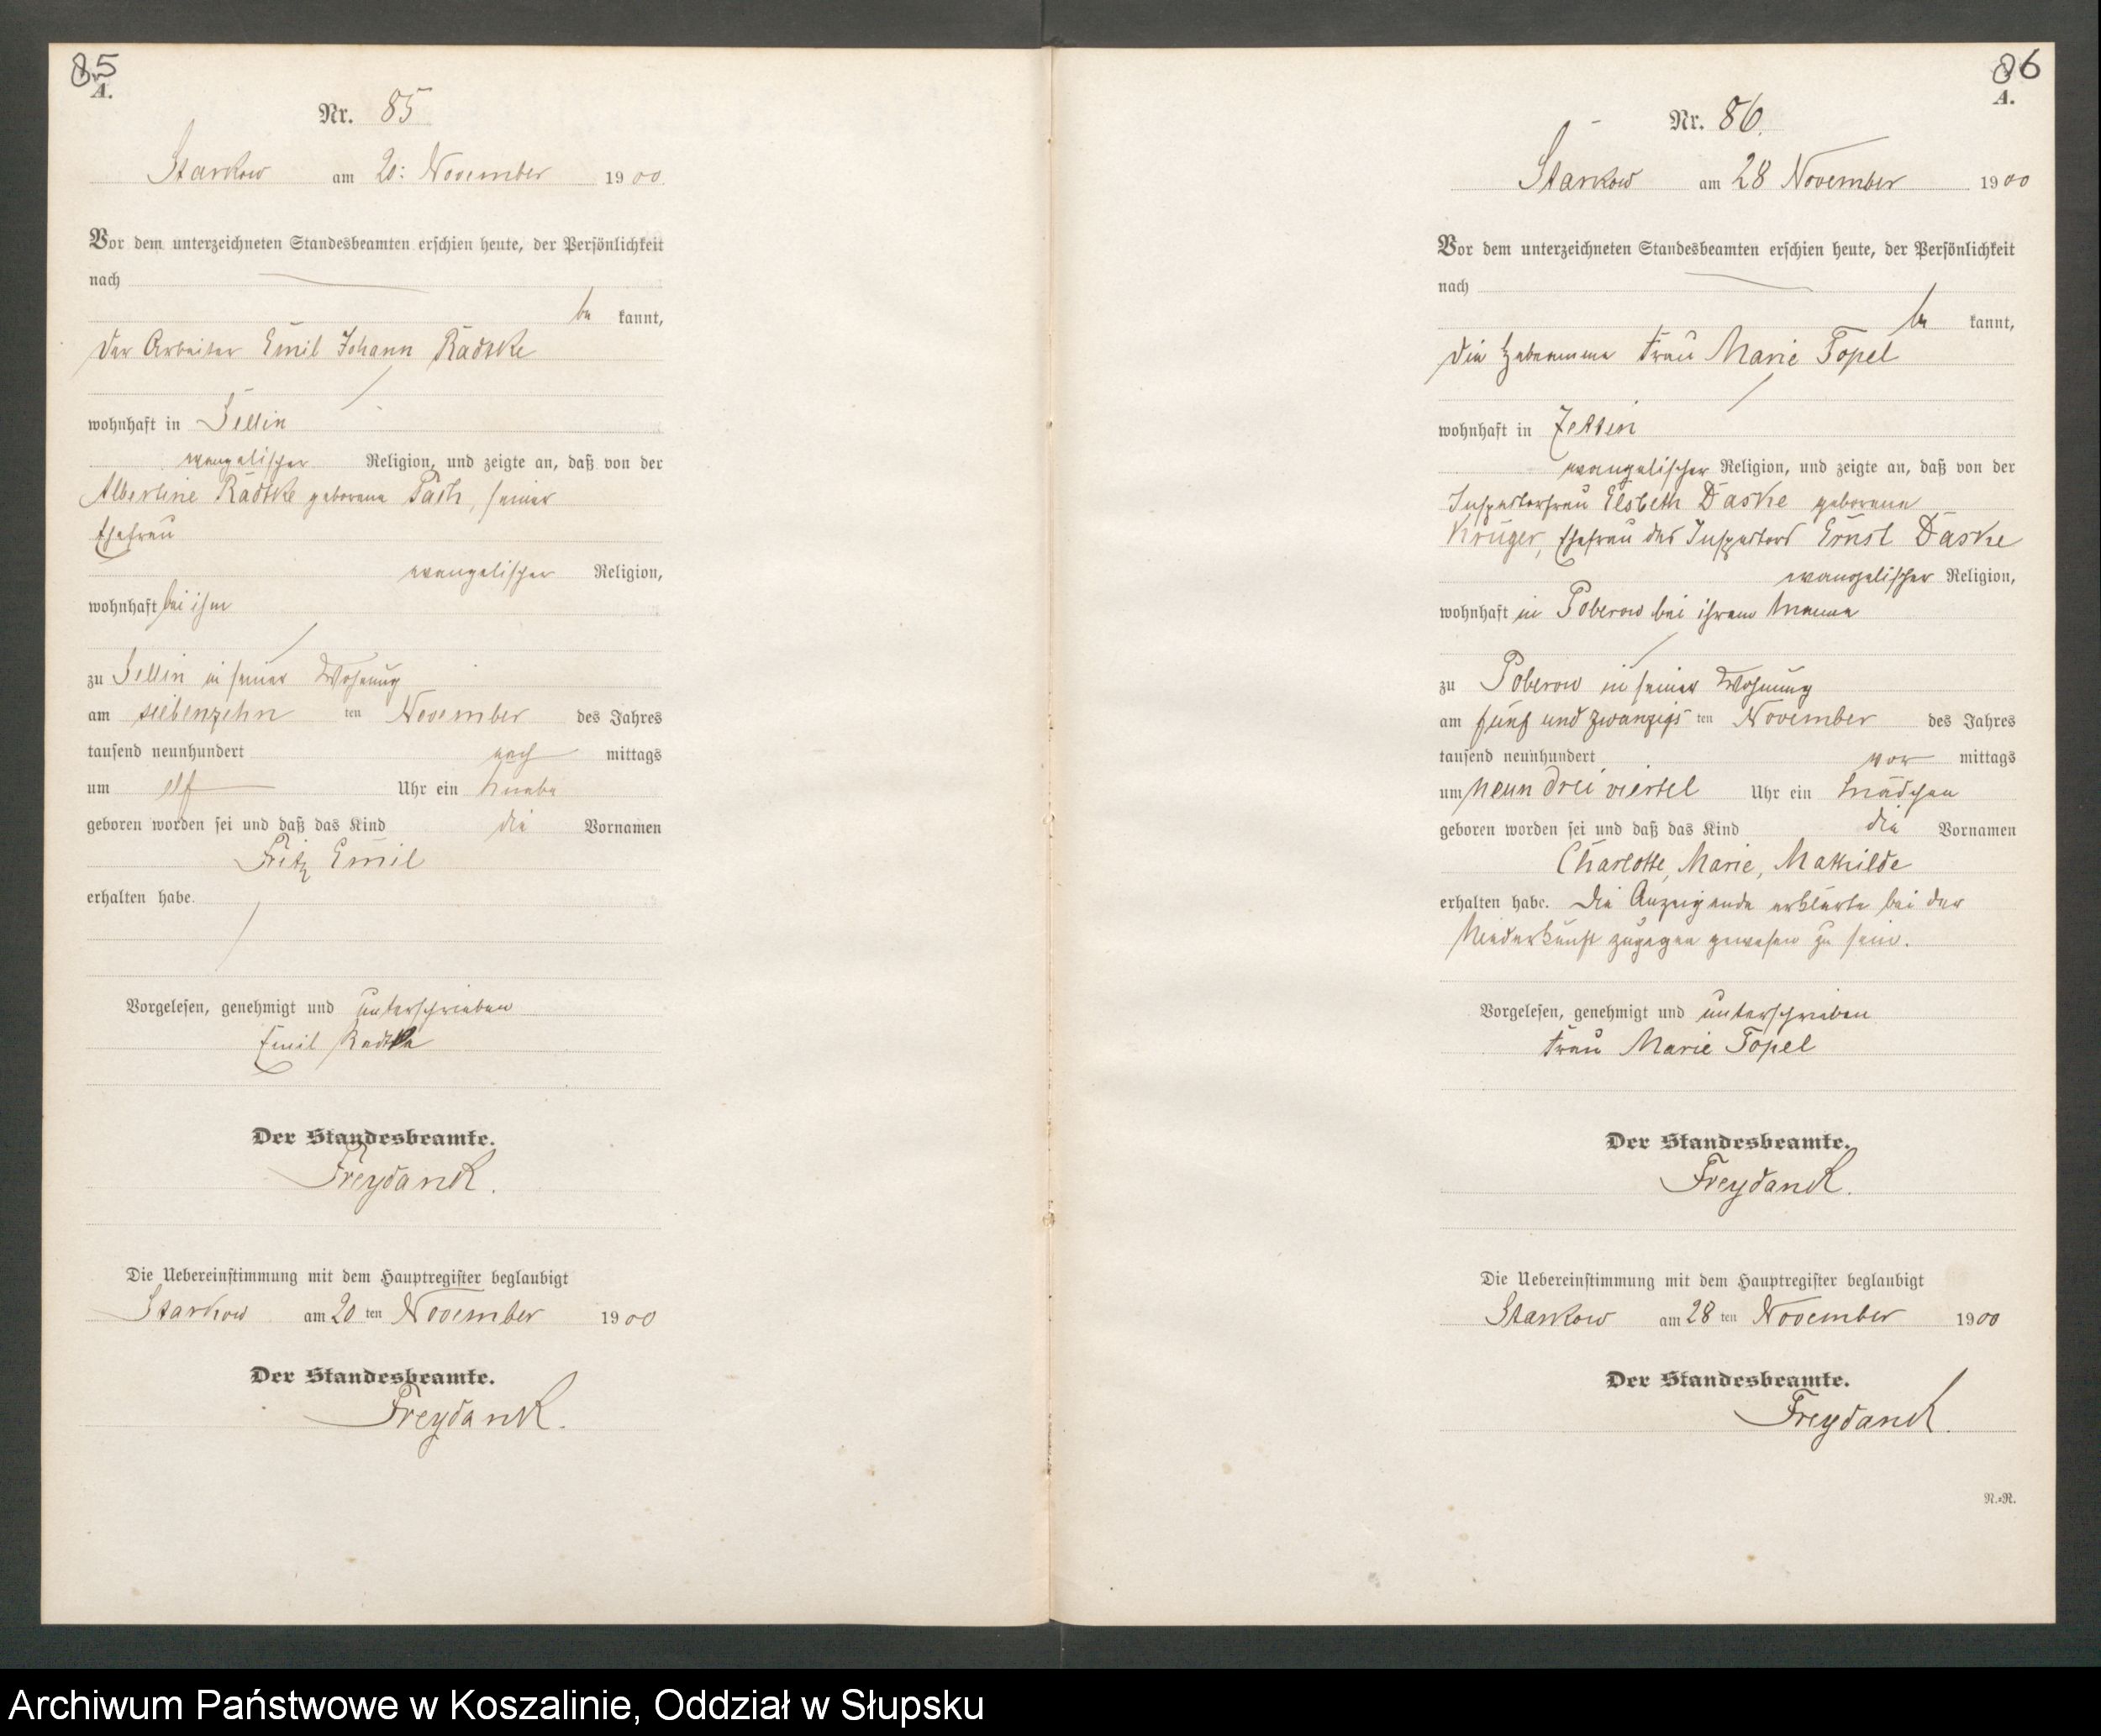 85
A.
Nr. 85
Starkow am 20. November 1900.
Vor dem unterzeichneten Standesbeamten erschien heute, der Persönlichkeit
nach
be kannt,
der Arbeiter Emil Johann Radtke
wohnhaft in Sellin
evangelischer Religion, und zeigte an, daß von der
Albertine Radtke geborene Pash, seiner
Ehefrau
evangelischer Religion,
wohnhaft bei ihm
zu Sellin in seiner Wohnung
am siebenzehn ten November des Jahres
tausend neunhundert nach mittags
um elf Uhr ein Knabe
geboren worden sei und daß das Kind die Vornamen
Fritz Emil
erhalten habe.
Vorgelesen, genehmigt und unterschrieben
Emil Radtke
Der Standesbeamte.
Freydank.
Die Uebereinstimmung mit dem Hauptregister beglaubigt
Starkow am 20 ten November 1900
Der Standesbeamte.
Freydank.
86
A.
Nr. 86.
Starkow am 28 November 1900
Vor dem unterzeichneten Standesbeamten erschien heute, der Persönlichkeit
nach
be kannt,
die Hebeamme Frau Marie Topel
wohnhaft in Zettin
evangelischer Religion, und zeigte an, daß von der
Inspectorfrau Elsbeth Daske geborene
Krüger, Ehefrau des Inspectors Ernst Daske
evangelischer Religion,
wohnhaft in Poberow bei ihrem Manne
zu Poberow in seiner Wohnung
am fünf und zwanzigs ten November des Jahres
tausend neunhundert vor mittags
um neun drei viertel Uhr ein Mädchen
geboren worden sei und daß das Kind die Vornamen
Charlotte, Marie, Mathilde
erhalten habe. Die Anzeigende erklärte bei der
Niederkunft zugegen gewesen zu sein.
Vorgelesen, genehmigt und unterschrieben
Frau Marie Topel
Der Standesbeamte.
Freydank.
Die Uebereinstimmung mit dem Hauptregister beglaubigt
Starkow am 28 ten November 1900
Der Standesbeamte.
Freydank.
N.=R.
Archiwum Państwowe w Koszalinie, Oddział w Słupsku